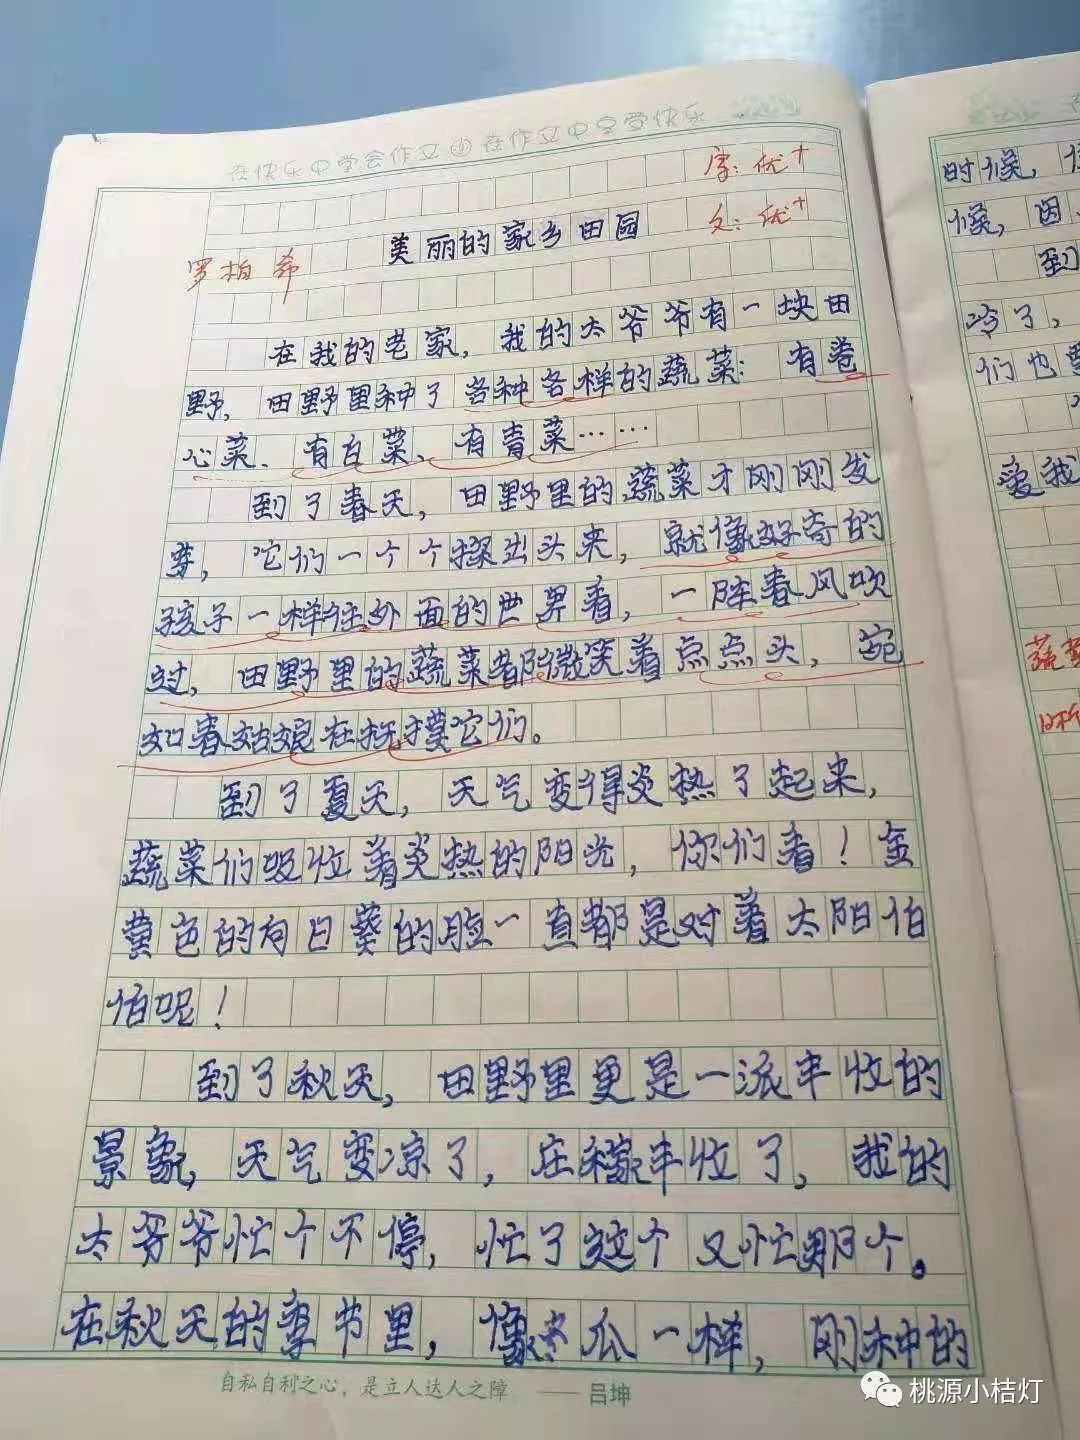 在快乐中学会作文 在作文中享受快乐
字：优+
美丽的家乡田园
文：优+
罗柏希
在我的老家，我的太爷爷有一块田
野，田野里种了各种各样的蔬菜：有卷
心菜、有白菜、有青菜……
到了春天，田野里的蔬菜才刚刚发
芽，它们一个个探出头来，就像好奇的
孩子一样往外面的世界看，一阵春风吹
过，田野里的蔬菜都微笑着点点头，宛
如春姑娘在抚摸它们。
到了夏天，天气变得炎热了起来，
蔬菜们吸收着炎热的阳光，你们看！金
黄色的向日葵的脸一直都是对着太阳伯
伯呢！
到了秋天，田野里更是一派丰收的
景象，天气变凉了，庄稼丰收了，我的
太爷爷忙个不停，忙了这个又忙那个。
在秋天的季节里，像冬瓜一样，刚种的
自私自利之心，是立人达人之障 ——吕坤
的候，
候，因
到
冷了，
们也
爱我
蔬菜
桃源小桔灯